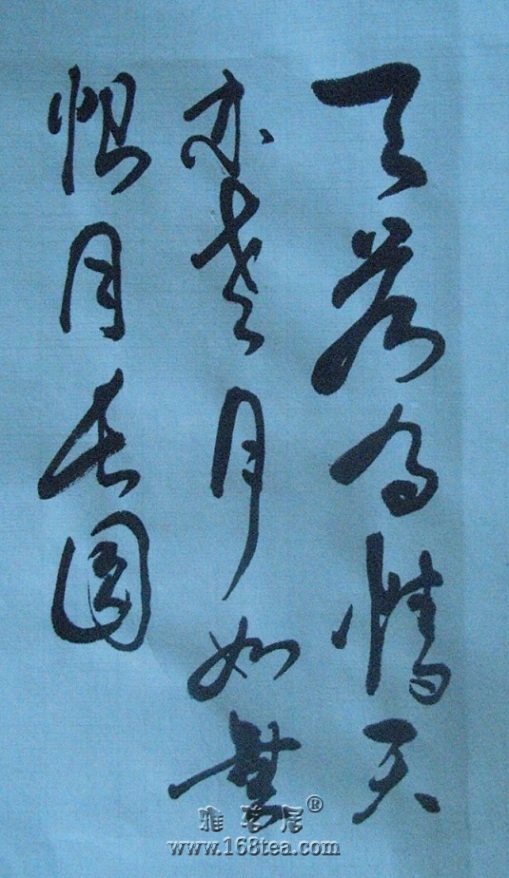 天若有情天
亦老月如無
恨月長圓
雅茗居®
www.168tea.com